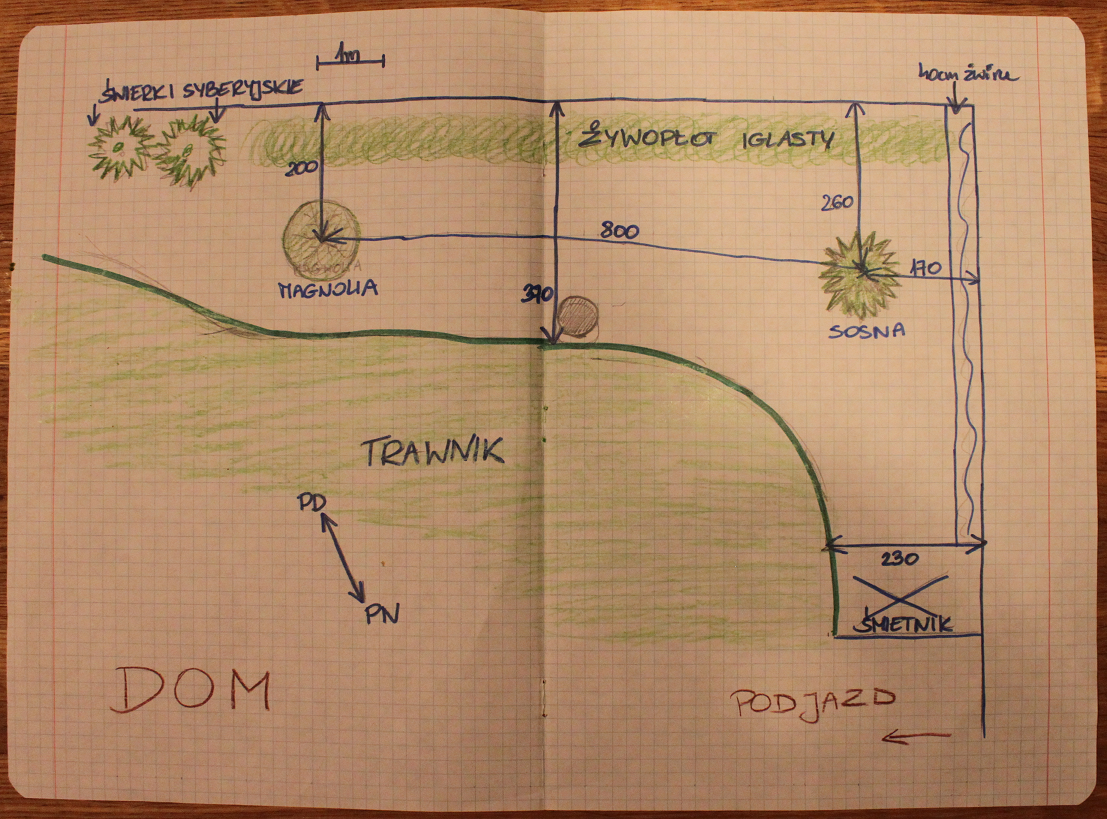 1m
40cm żwiru
ŚWIERKI SYBERYJSKIE
ŻYWOPŁOT IGLASTY
200
260
800
170
MAGNOLIA
MAGNOLIA
370
SOSNA
TRAWNIK
PD
PN
230
ŚMIETNIK
DOM
PODJAZD